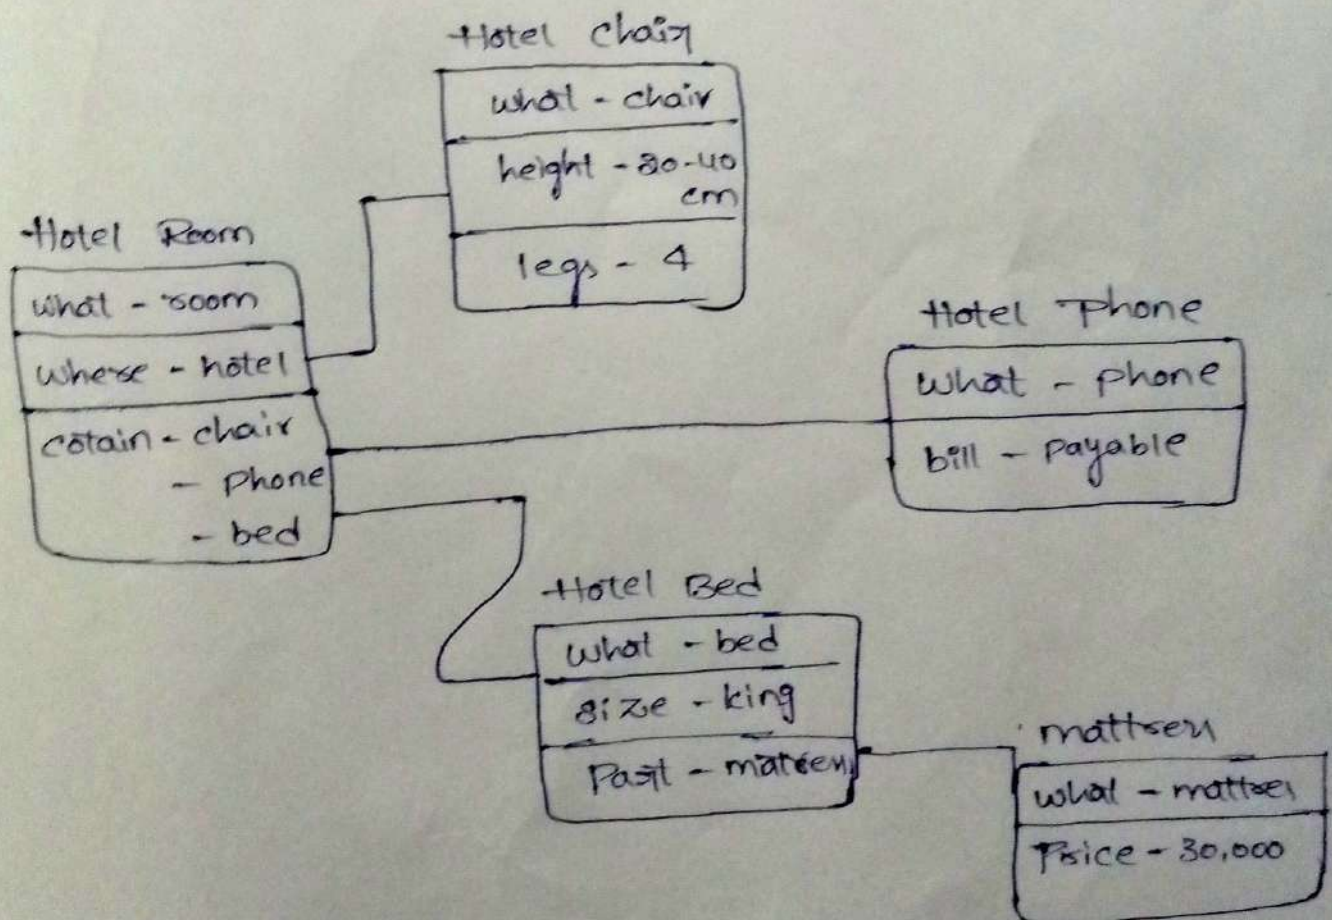 Hotel Chair
what - chair
height - 20-40
cm
legs - 4
Hotel Room
what - room
where - hotel
cotain - chair
- phone
- bed
Hotel Phone
what - phone
bill - payable
Hotel Bed
what - bed
size - king
Part - matress
mattress
what - mattres
Price - 30,000